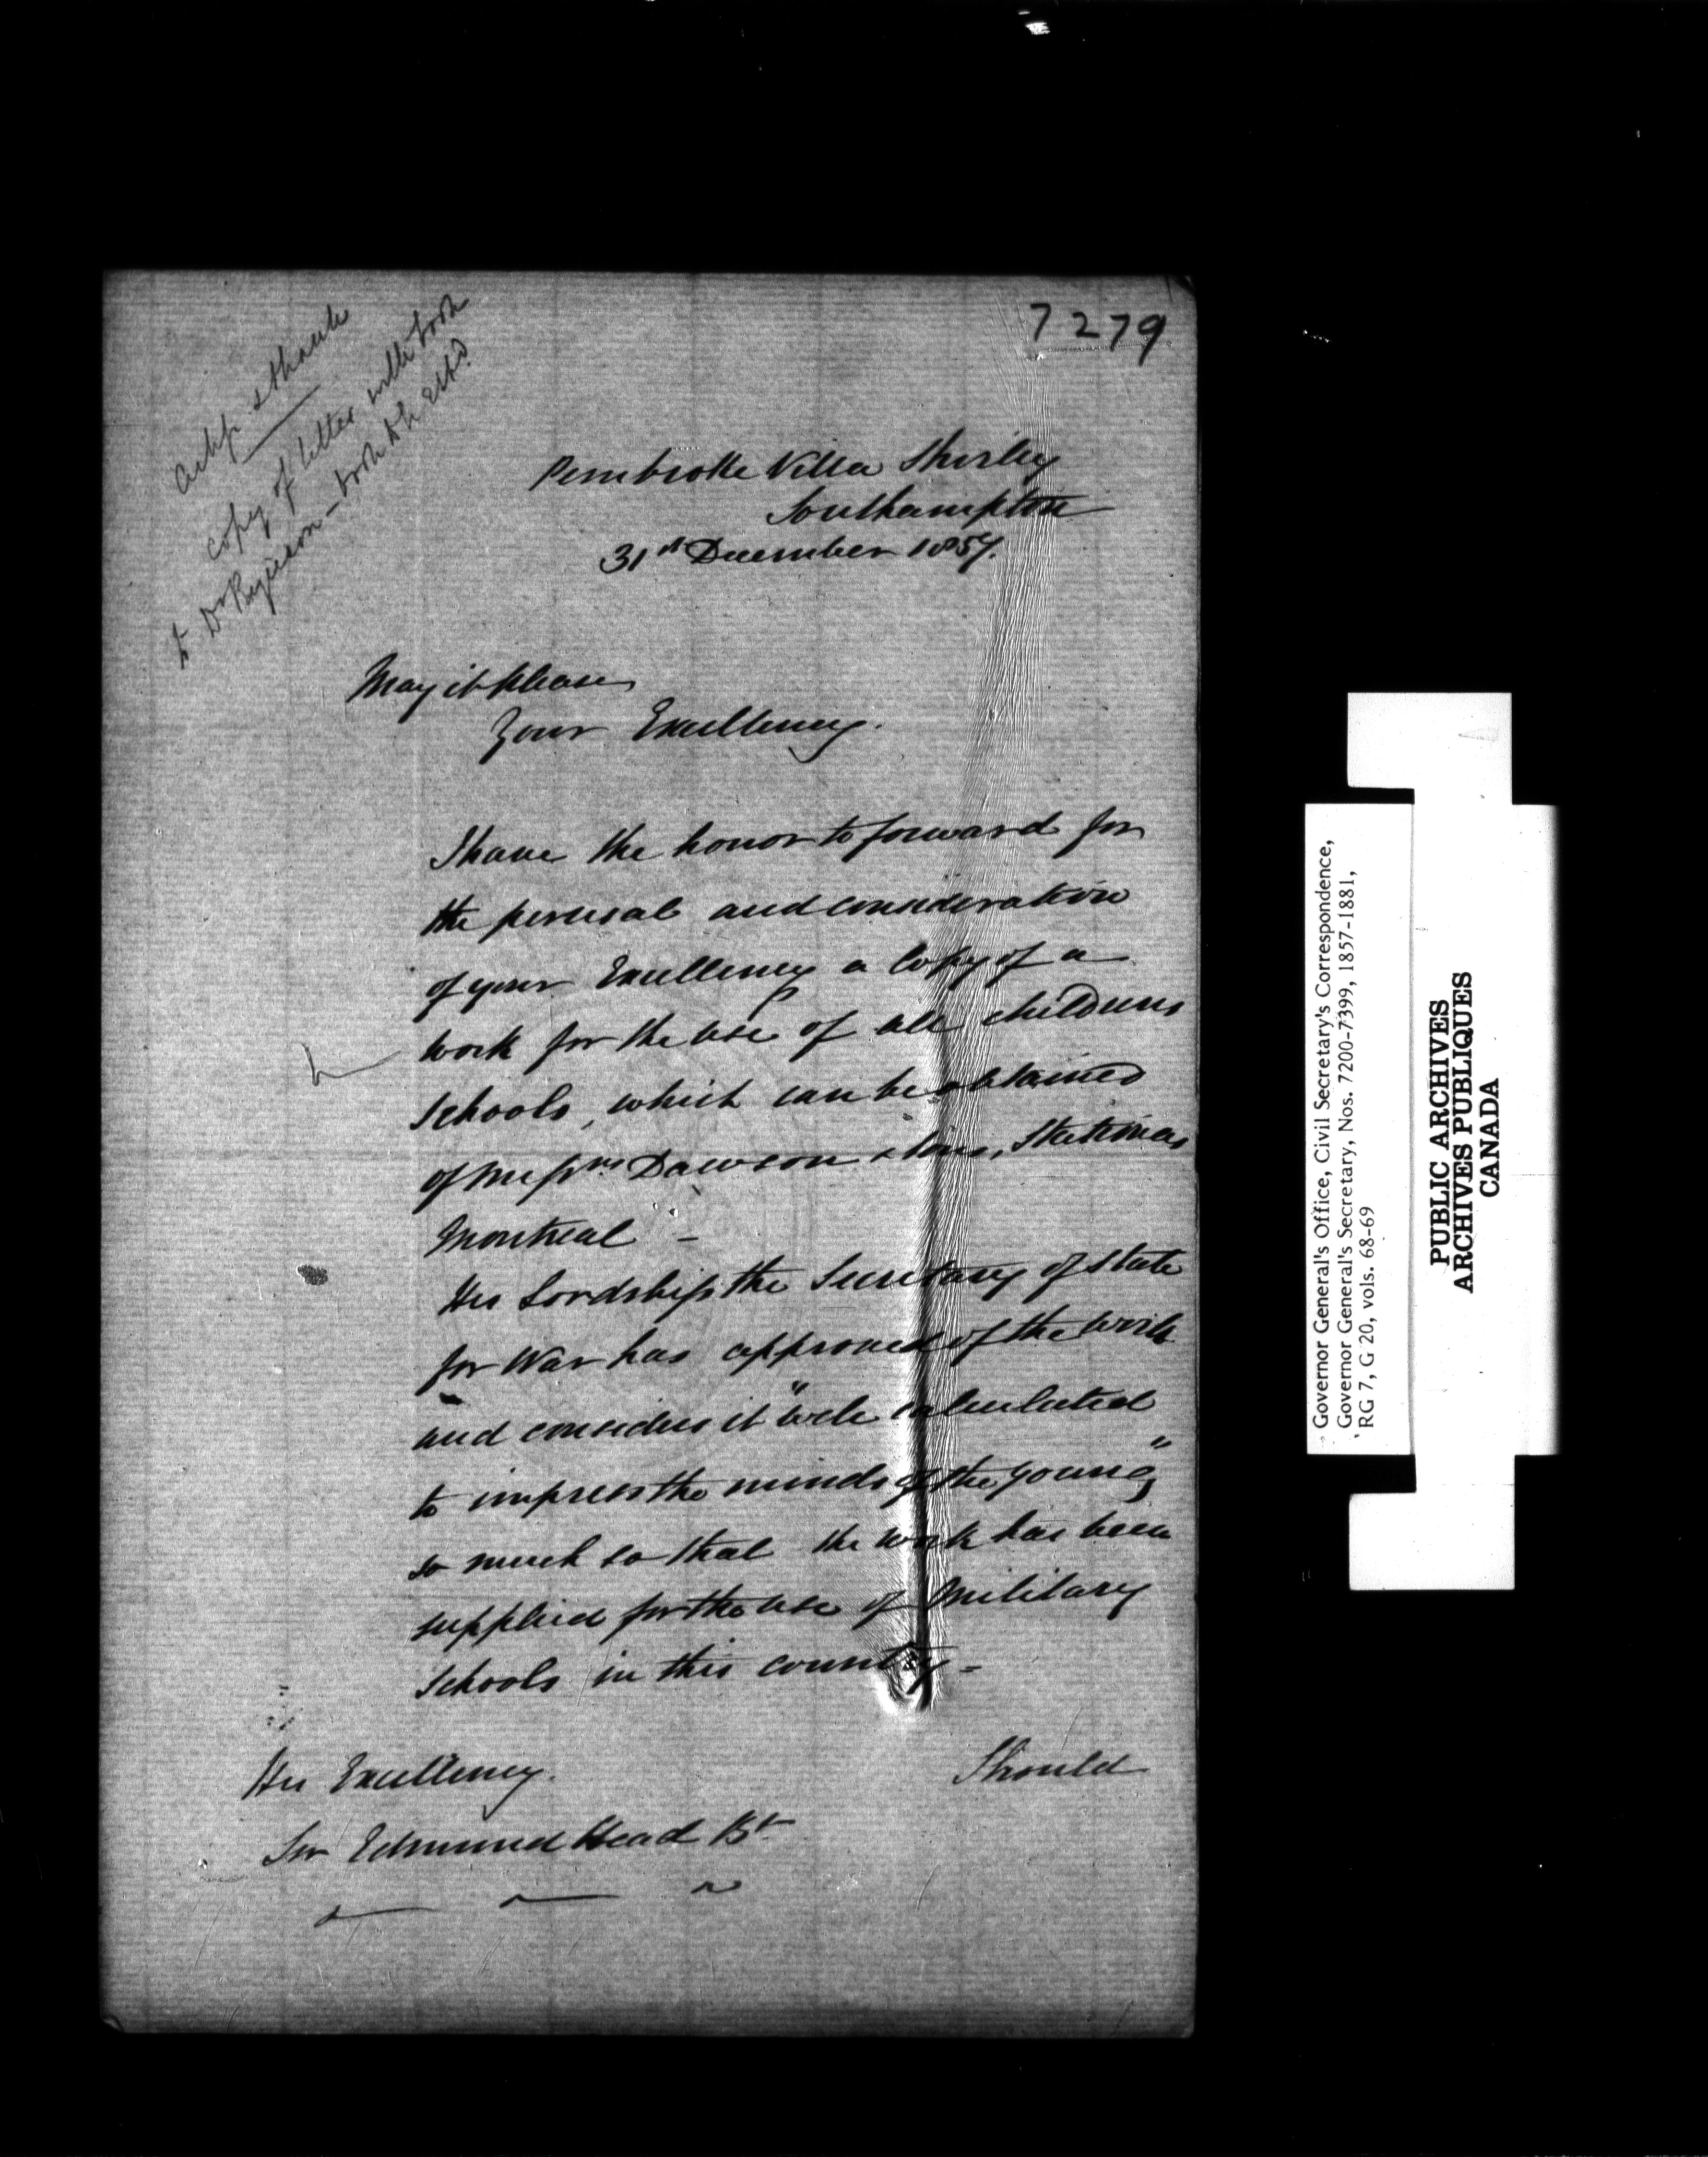 7279
ackg. & thank
copy of letter with book
to Dr Ryerson - book to be retd.
Pembroke Villa Shirley
Southampton
31st December 1857.
May it please
Your Excellency.
I have the honor to forward for
the perusal and consideration
of your Excellency a Copy of a
work for the use of all childrens
schools, which can be obtained
of Messrs Dawson & Sons, Stationers
Montreal -
His Lordship the Secretary of State
for War has approved of the work
and considers it "well calculated
to impress the minds of the young"
so much so that the work has been
supplied for the use of Military
schools in this country -
Should
His Excellency.
Sir Edmund Head Bt
Governor General's Office, Civil Secretary's Correspondence,
Governor General's Secretary, Nos. 7200-7399, 1857-1881,
RG 7, G 20, vols. 68-69
PUBLIC ARCHIVES
ARCHIVES PUBLIQUES
CANADA